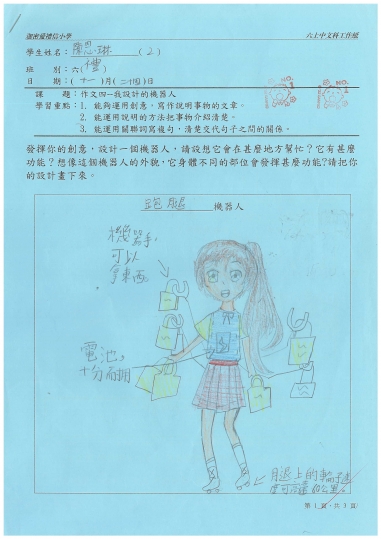 迦密愛禮信小學 六上中文科工作紙
學生姓名：陳思琳 (2)
班 別：六(禮)
日 期：(十一)月(二十四)日
課 題：作文四—我設計的機器人
學習重點：1. 能夠運用創意，寫作說明事物的文章。
2. 能運用說明的方法把事物介紹清楚。
3. 能運用關聯詞寫複句，清楚交代句子之間的關係。
發揮你的創意，設計一個機器人，請設想它會在甚麼地方幫忙？它有甚麼
功能？想像這個機器人的外貌，它身體不同的部位會發揮甚麼功能？請把你
的設計畫下來。
跑腿機器人
機器手，
可以
拿東西。
電池。
十分耐用
腳上的輪子達
60公里。
第1頁，共3頁